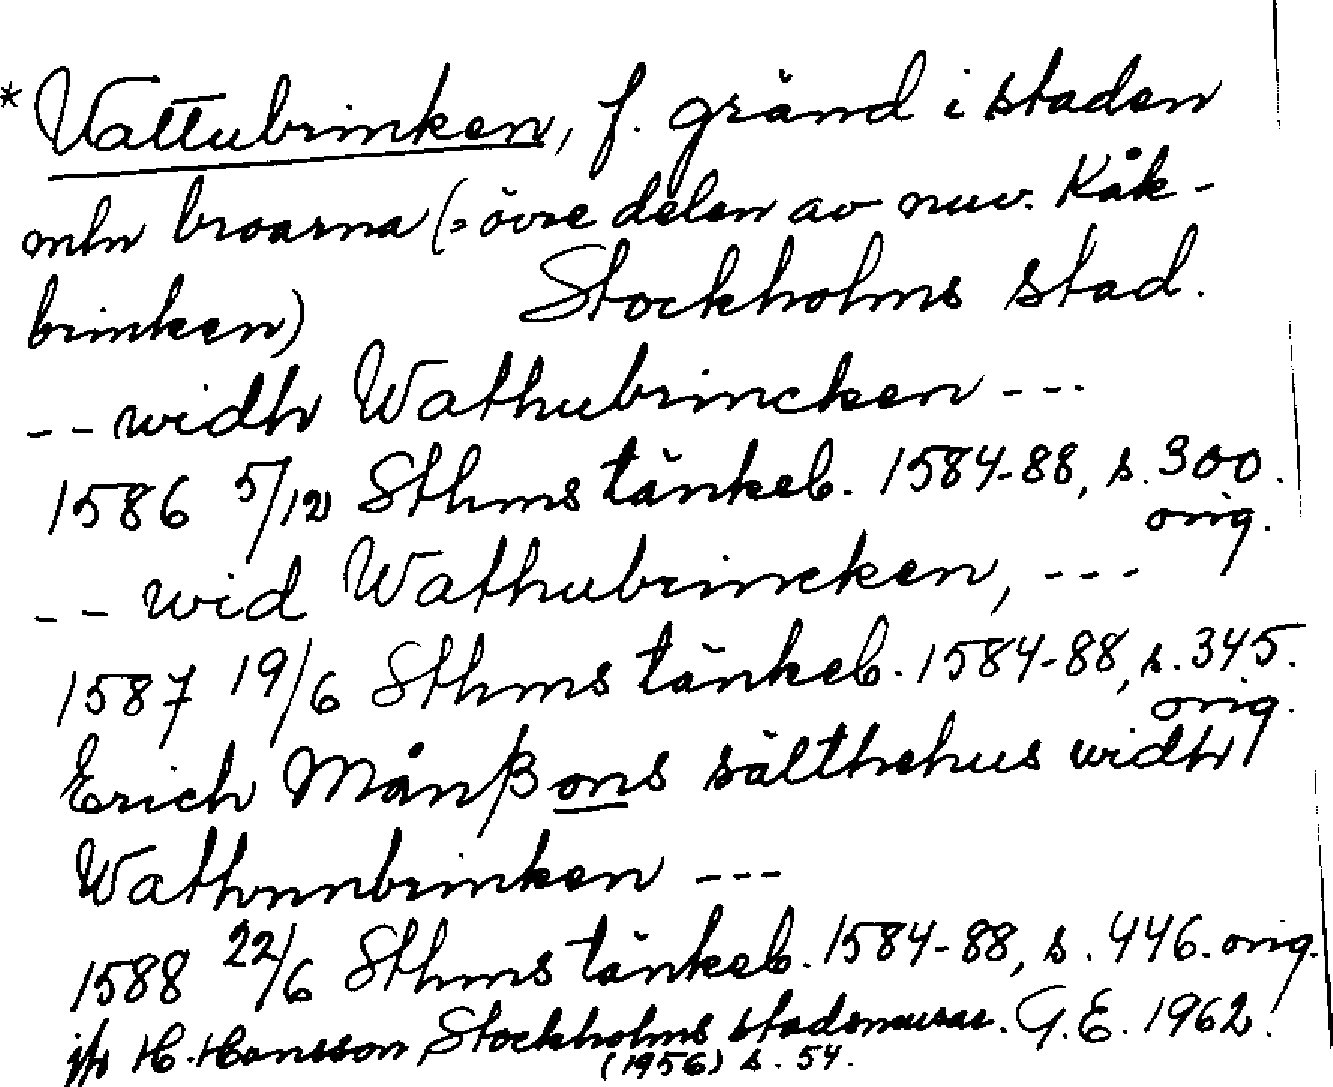 * Vattubrinken, f. gränd i staden
mln broarna (= övre delen av nuv. Kåk-
brinken) Stockholms stad.
-- widh Wathubrincken ---
1586 5/12 Sthms tänkeb. 1584-88, s. 300.
orig.
-- wid Wathubrincken, ---
1587 19/6 Sthms tänkeb. 1584-88, s. 345.
orig.
Erich Månßons sälthehus widh
Wathnnbrinken ---
1588 22/6 Sthms tänkeb. 1584-88, s. 446. orig.
jfr H. Hansson Stockholms stadsmurar. G.E. 1962.
(1956) s. 54.